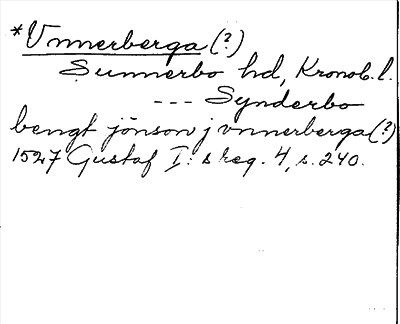 *Vnnerberga (?)
Sunnerbo hd, Kronob. l.
--- Synderbo
bengt jönson j vnnerberga (?)
1527 Gustaf I:s reg. 4, s. 240.